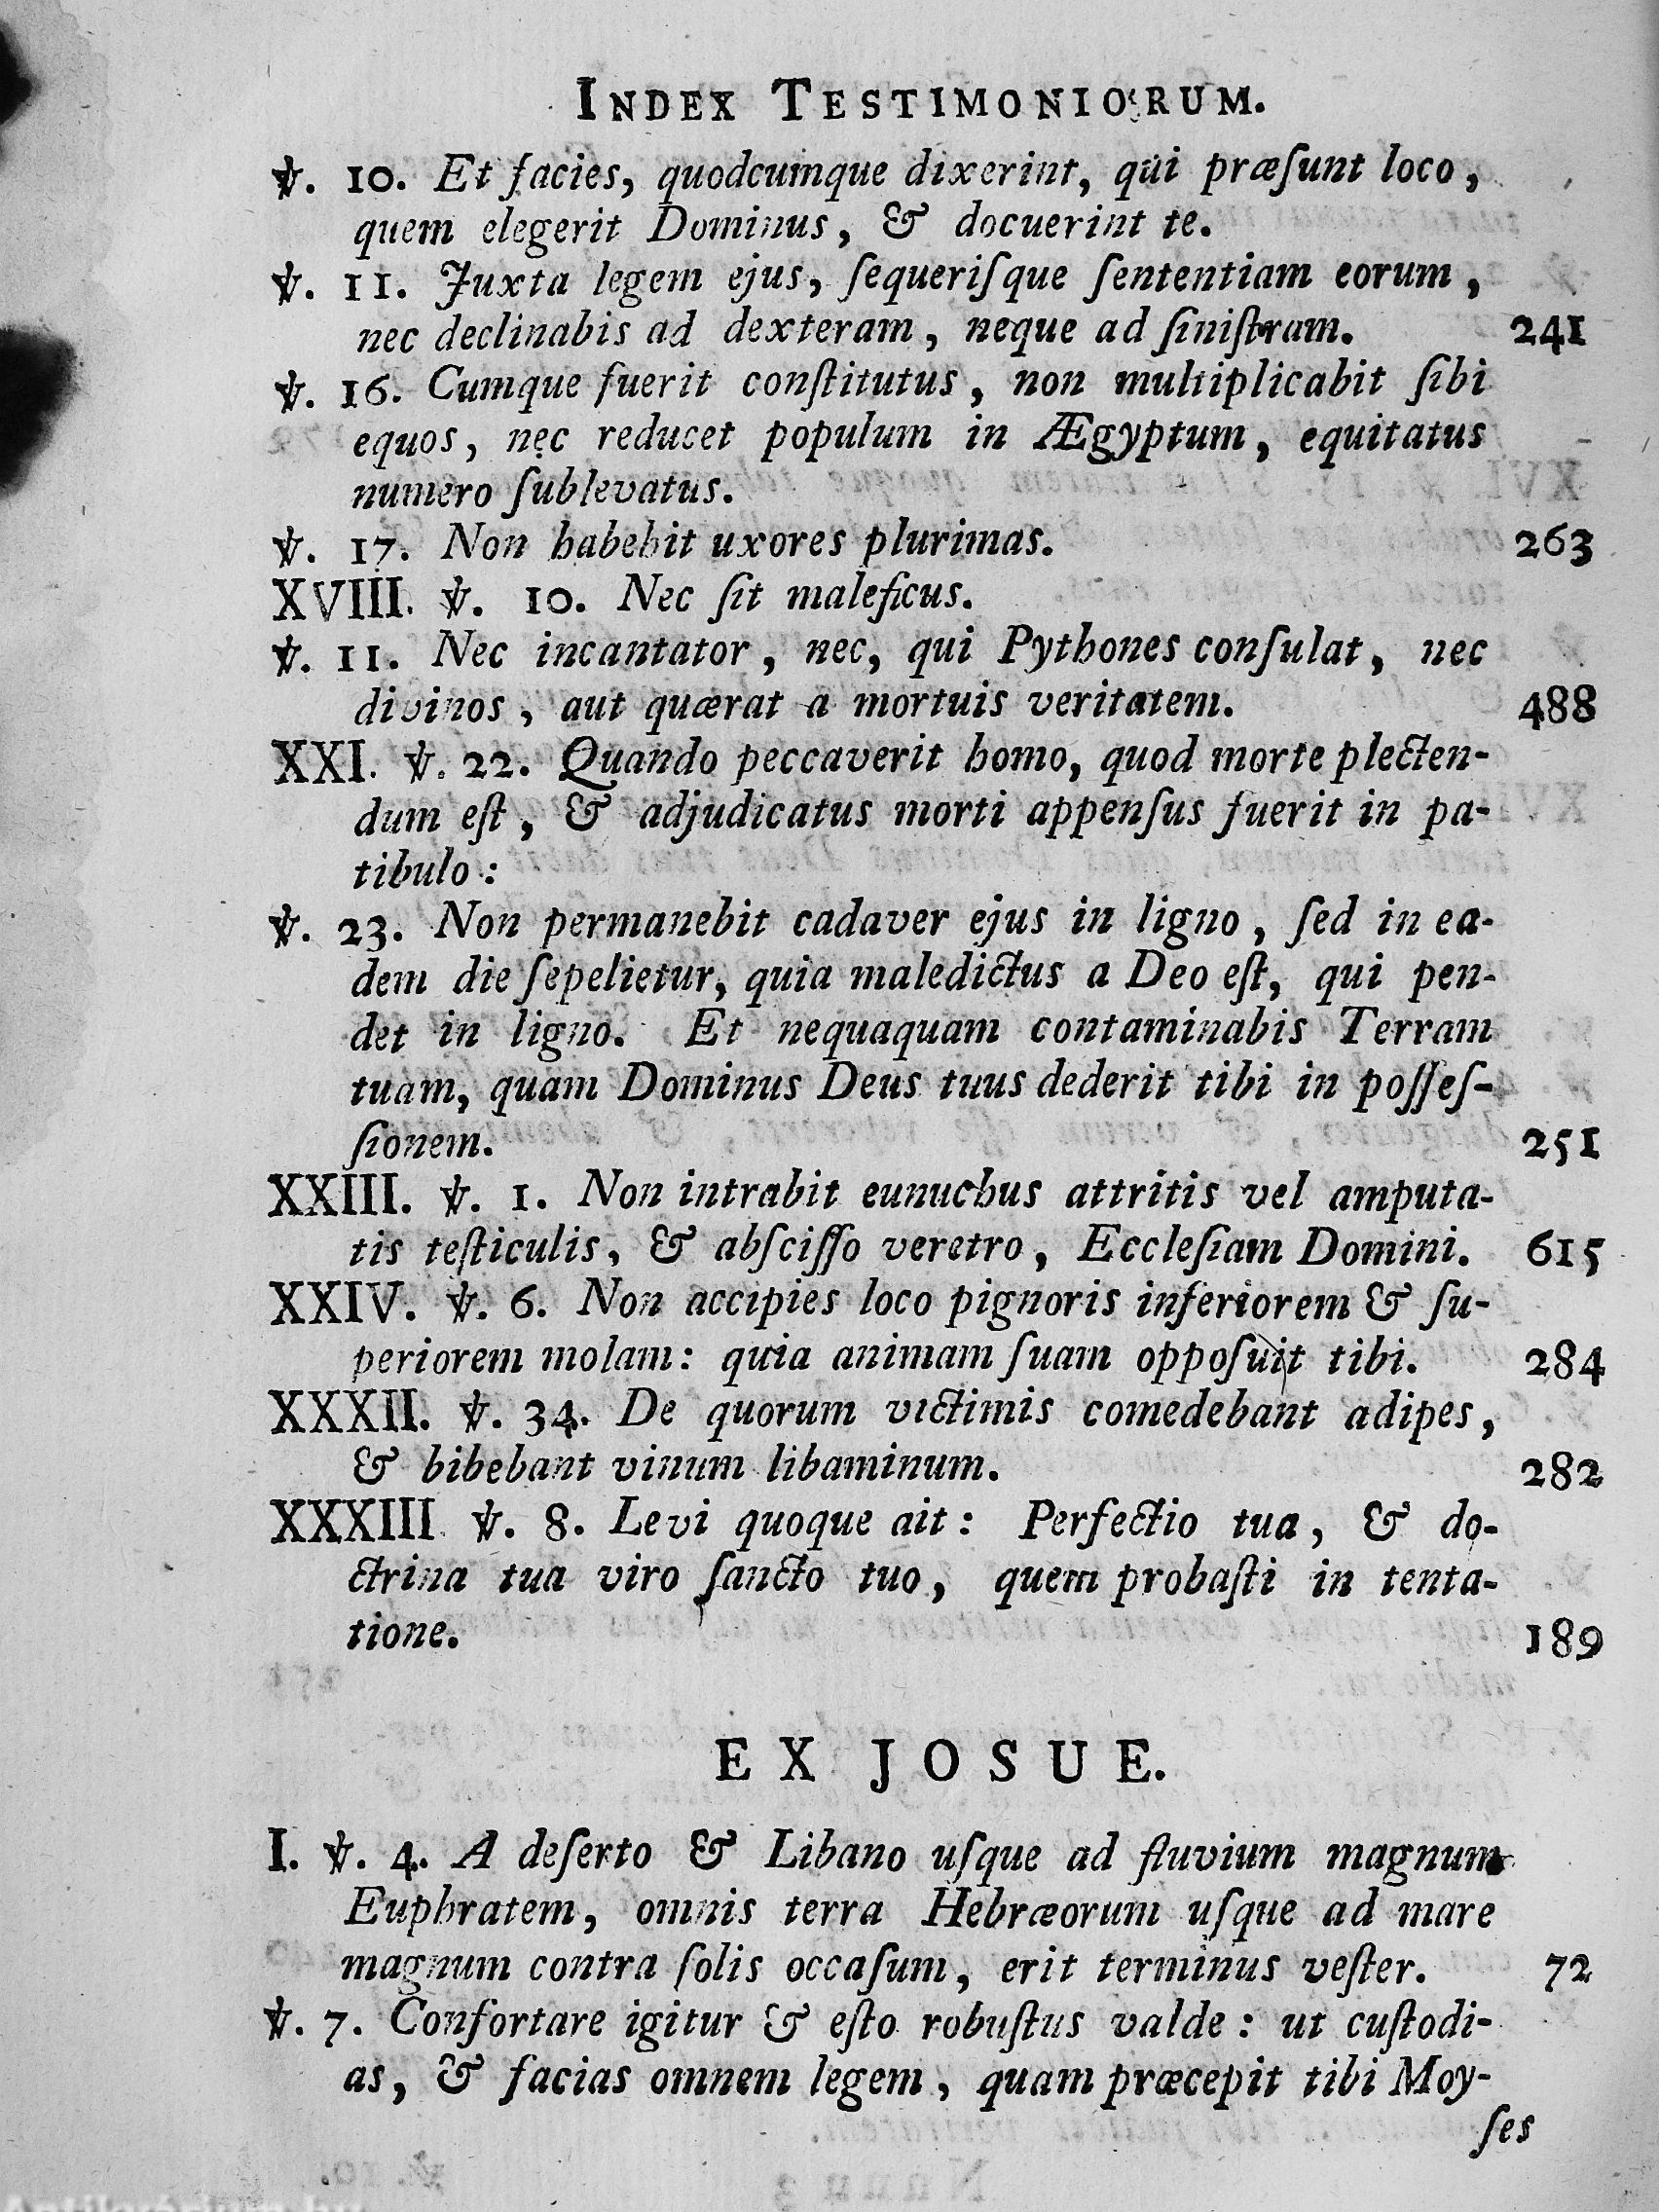 INDEX TESTIMONIORUM.
℣. 10. Et facies, quodcumque dixerint, qui præſunt loco,
quem elegerit Dominus, & docuerint te.
℣. 11. Juxta legem ejus, ſequeriſque ſententiam eorum,
nec declinabis ad dexteram, neque ad ſiniſtram. 241
℣. 16. Cumque fuerit conſtitutus, non multiplicabit ſibi
equos, nec reducet populum in Ægyptum, equitatus
numero ſublevatus.
℣. 17. Non habebit uxores plurimas. 263
XVIII. ℣. 10. Nec ſit maleficus.
℣. 11. Nec incantator, nec, qui Pythones conſulat, nec
divinos, aut quærat a mortuis veritatem. 488
XXI. ℣. 22. Quando peccaverit homo, quod morte plecten-
dum eſt, & adjudicatus morti appenſus fuerit in pa-
tibulo:
℣. 23. Non permanebit cadaver ejus in ligno, ſed in ea-
dem die ſepelietur, quia maledictus a Deo eſt, qui pen-
det in ligno. Et nequaquam contaminabis Terram
tuam, quam Dominus Deus tuus dederit tibi in poſſeſ-
ſionem. 251
XXIII. ℣. 1. Non intrabit eunuchus attritis vel amputa-
tis teſticulis, & abſciſſo veretro, Eccleſiam Domini. 615
XXIV. ℣. 6. Non accipies loco pignoris inferiorem & ſu-
periorem molam: quia animam ſuam oppoſuit tibi. 284
XXXII. ℣. 34. De quorum victimis comedebant adipes,
& bibebant vinum libaminum. 282
XXXIII ℣. 8. Levi quoque ait: Perfectio tua, & do-
ctrina tua viro ſancto tuo, quem probaſti in tenta-
tione. 189
EX JOSUE.
I. ℣. 4. A deſerto & Libano uſque ad fluvium magnum
Euphratem, omnis terra Hebræorum uſque ad mare
magnum contra ſolis occaſum, erit terminus veſter. 72
℣. 7. Confortare igitur & eſto robuſtus valde: ut cuſtodi-
as, & facias omnem legem, quam præcepit tibi Moy-
ſes